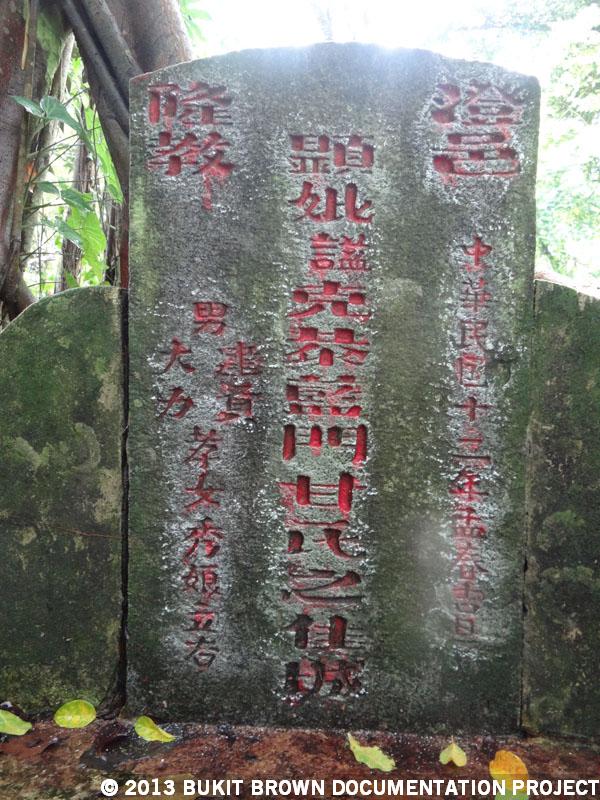 澄邑
中華民國十五年孟春吉日
顯妣謚克恭藍門甘氏之佳城
男
資
大力
孝女秀娘立石
隆教
© 2013 BUKIT BROWN DOCUMENTATION PROJECT